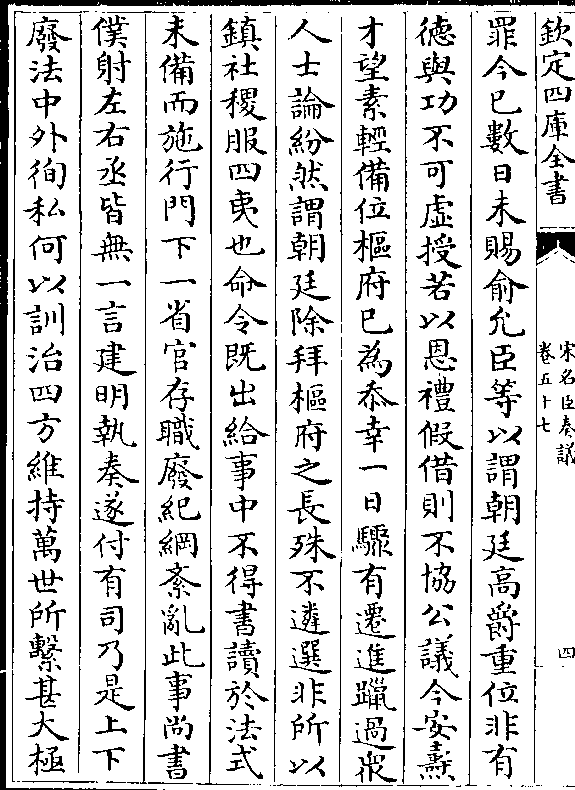 欽定四庫全書
宋名臣奏議
卷五十七
四
罪今已數日未賜俞允臣等以謂朝廷高爵重位非有
徳與功不可虛授若以恩禮假借則不協公議今安燾
才望素輕備位樞府已為忝幸一日驟有遷進躐過衆
人士論紛然謂朝廷除拜樞府之長殊不遴選非所以
鎮社稷服四夷也命令既出給事中不得書讀於法式
未備而施行門下一省官存職廢紀綱紊亂此事尚書
僕射左右丞皆無一言建明執奏遂付有司乃是上下
廢法中外徇私何以訓治四方維持萬世所繫甚大極